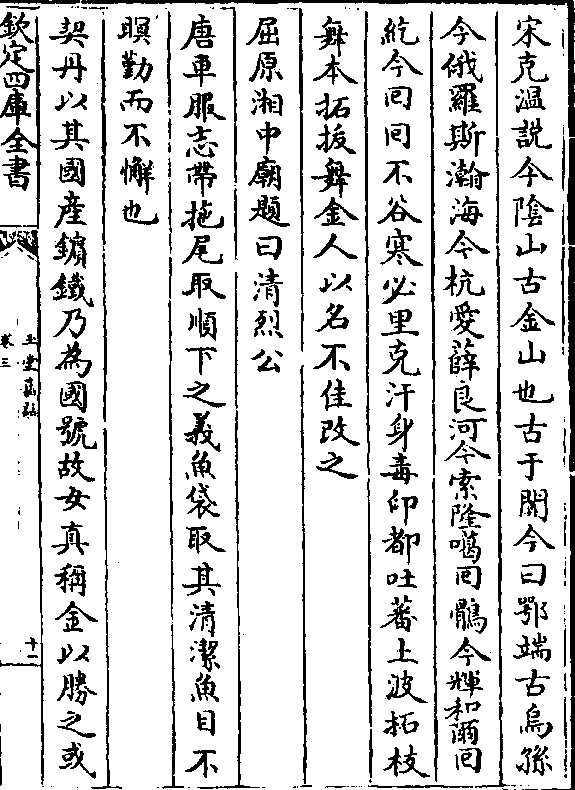 宋克温説今陰山古金山也古于闐今曰鄂端古烏孫
今俄羅斯瀚海今杭愛薛良河今索隆噶回鶻今輝和爾回
紇今回回不谷寒必里克汗身毒卬都吐蕃土波拓枝
舞本拓抜舞金人以名不佳改之
屈原湘中廟題曰清烈公
唐車服志帶拖尾取順下之義魚袋取其清潔魚目不
瞑勤而不懈也
契丹以其國産鑌鐵乃為國號故女真稱金以勝之或
欽定四庫全書
玉堂嘉話
卷三
十一